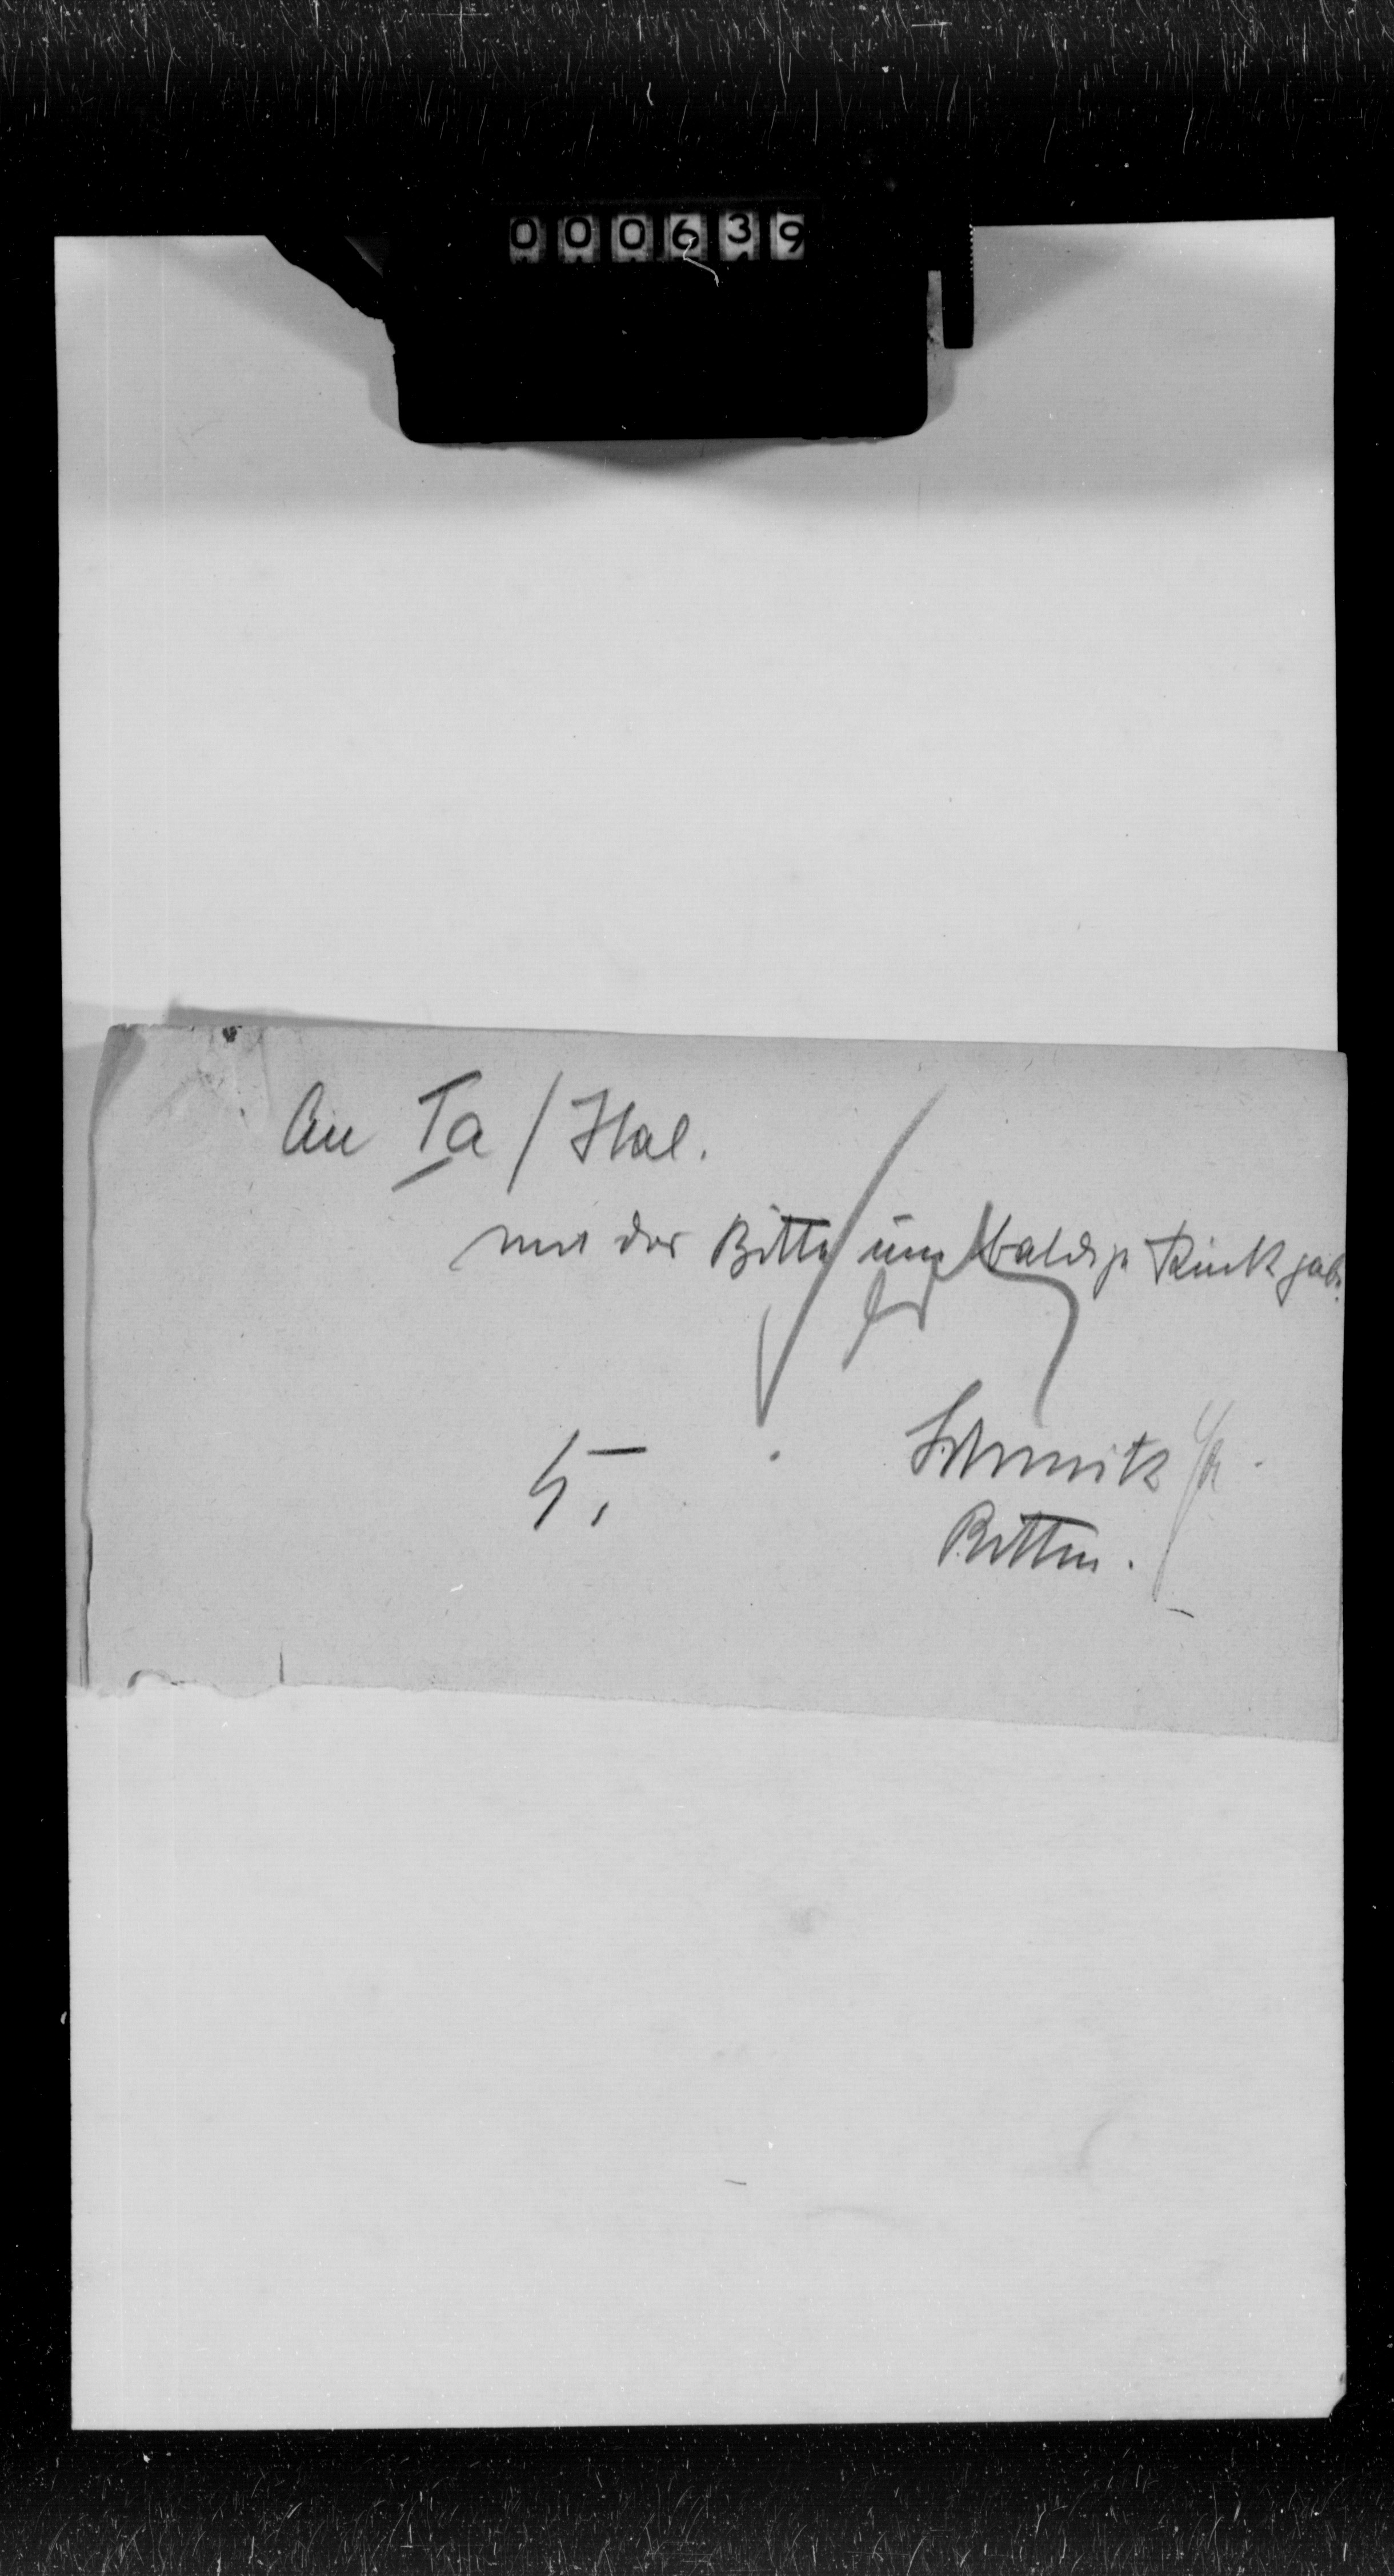 000639
An Ia / Ital.
mit der Bitte um baldige Rückgabe.
Schmitz
Rittm.